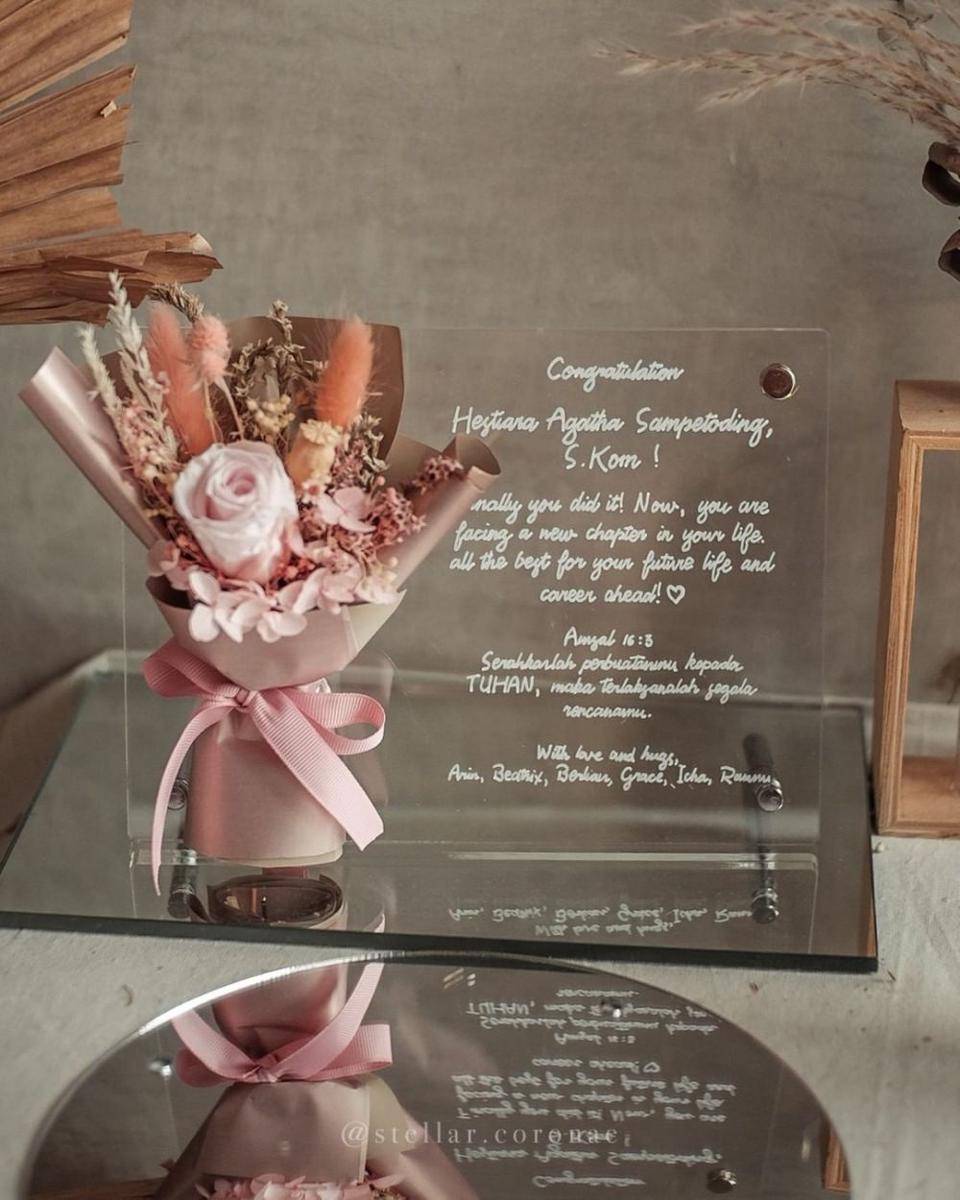 Congratulation
Hestiara Agatha Sampetoding,
S.Kom !
nally you did it! Now, you are
facing a new chapter in your life.
all the best for your future life and
career ahead! ♡
Amsal 16:3
Serahkanlah perbuatanmu kepada
TUHAN, maka terlaksanalah segala
rencanamu.
With love and hugs,
Arin, Beatrix, Berlian, Grace, Icha,
@stellar.coronae